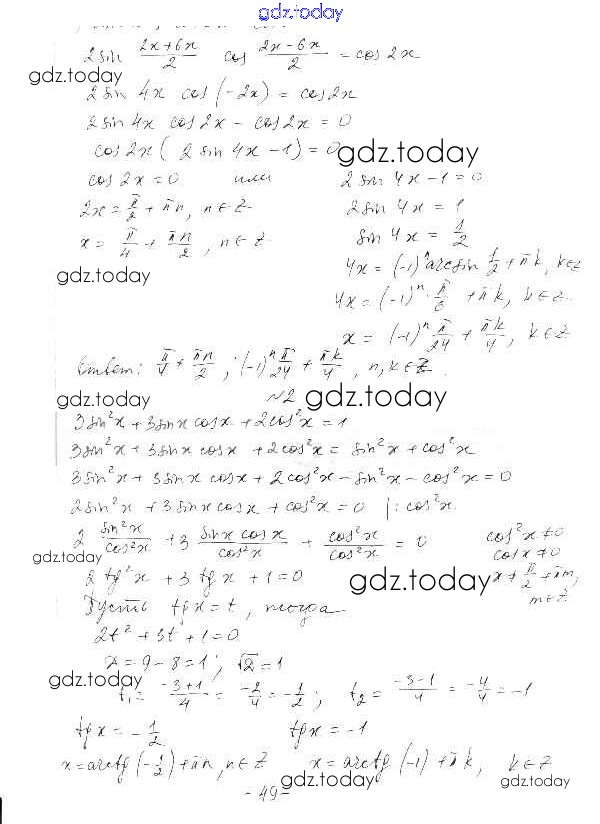 gdz.today
2 sin (2x+6x)/2 cos (2x-6x)/2 = cos 2x
gdz.today
2 sin 4x cos (-2x) = cos 2x
2 sin 4x cos 2x - cos 2x = 0
cos 2x (2 sin 4x - 1) = 0
gdz.today
cos 2x = 0 или 2 sin 4x - 1 = 0
2x = π/2 + πn, n ∈ Z 2 sin 4x = 1
x = π/4 + πn/2, n ∈ Z sin 4x = 1/2
gdz.today
4x = (-1)^n arcsin 1/2 + πk, k ∈ Z
4x = (-1)^n · π/6 + πk, k ∈ Z
x = (-1)^n π/24 + πk/4, k ∈ Z
Ответ: π/4 + πn/2; (-1)^n π/24 + πk/4, n, k ∈ Z
gdz.today №2 gdz.today
3 sin²x + 3 sin x cos x + 2 cos²x = 1
3 sin²x + 3 sin x cos x + 2 cos²x = sin²x + cos²x
3 sin²x + 3 sin x cos x + 2 cos²x - sin²x - cos²x = 0
2 sin²x + 3 sin x cos x + cos²x = 0 |: cos²x
2 sin²x/cos²x + 3 sin x cos x/cos²x + cos²x/cos²x = 0 cos²x ≠ 0
cos x ≠ 0
gdz.today
2 tg²x + 3 tg x + 1 = 0 gdz.today x ≠ π/2 + πm,
m ∈ Z
Пусть tg x = t, тогда
2t² + 3t + 1 = 0
D = 9 - 8 = 1; √D = 1
gdz.today
t₁ = (-3+1)/4 = -2/4 = -1/2; t₂ = (-3-1)/4 = -4/4 = -1
tg x = -1/2 tg x = -1
x = arctg (-1/2) + πn, n ∈ Z x = arctg (-1) + πk, k ∈ Z
gdz.today gdz.today
- 49 -